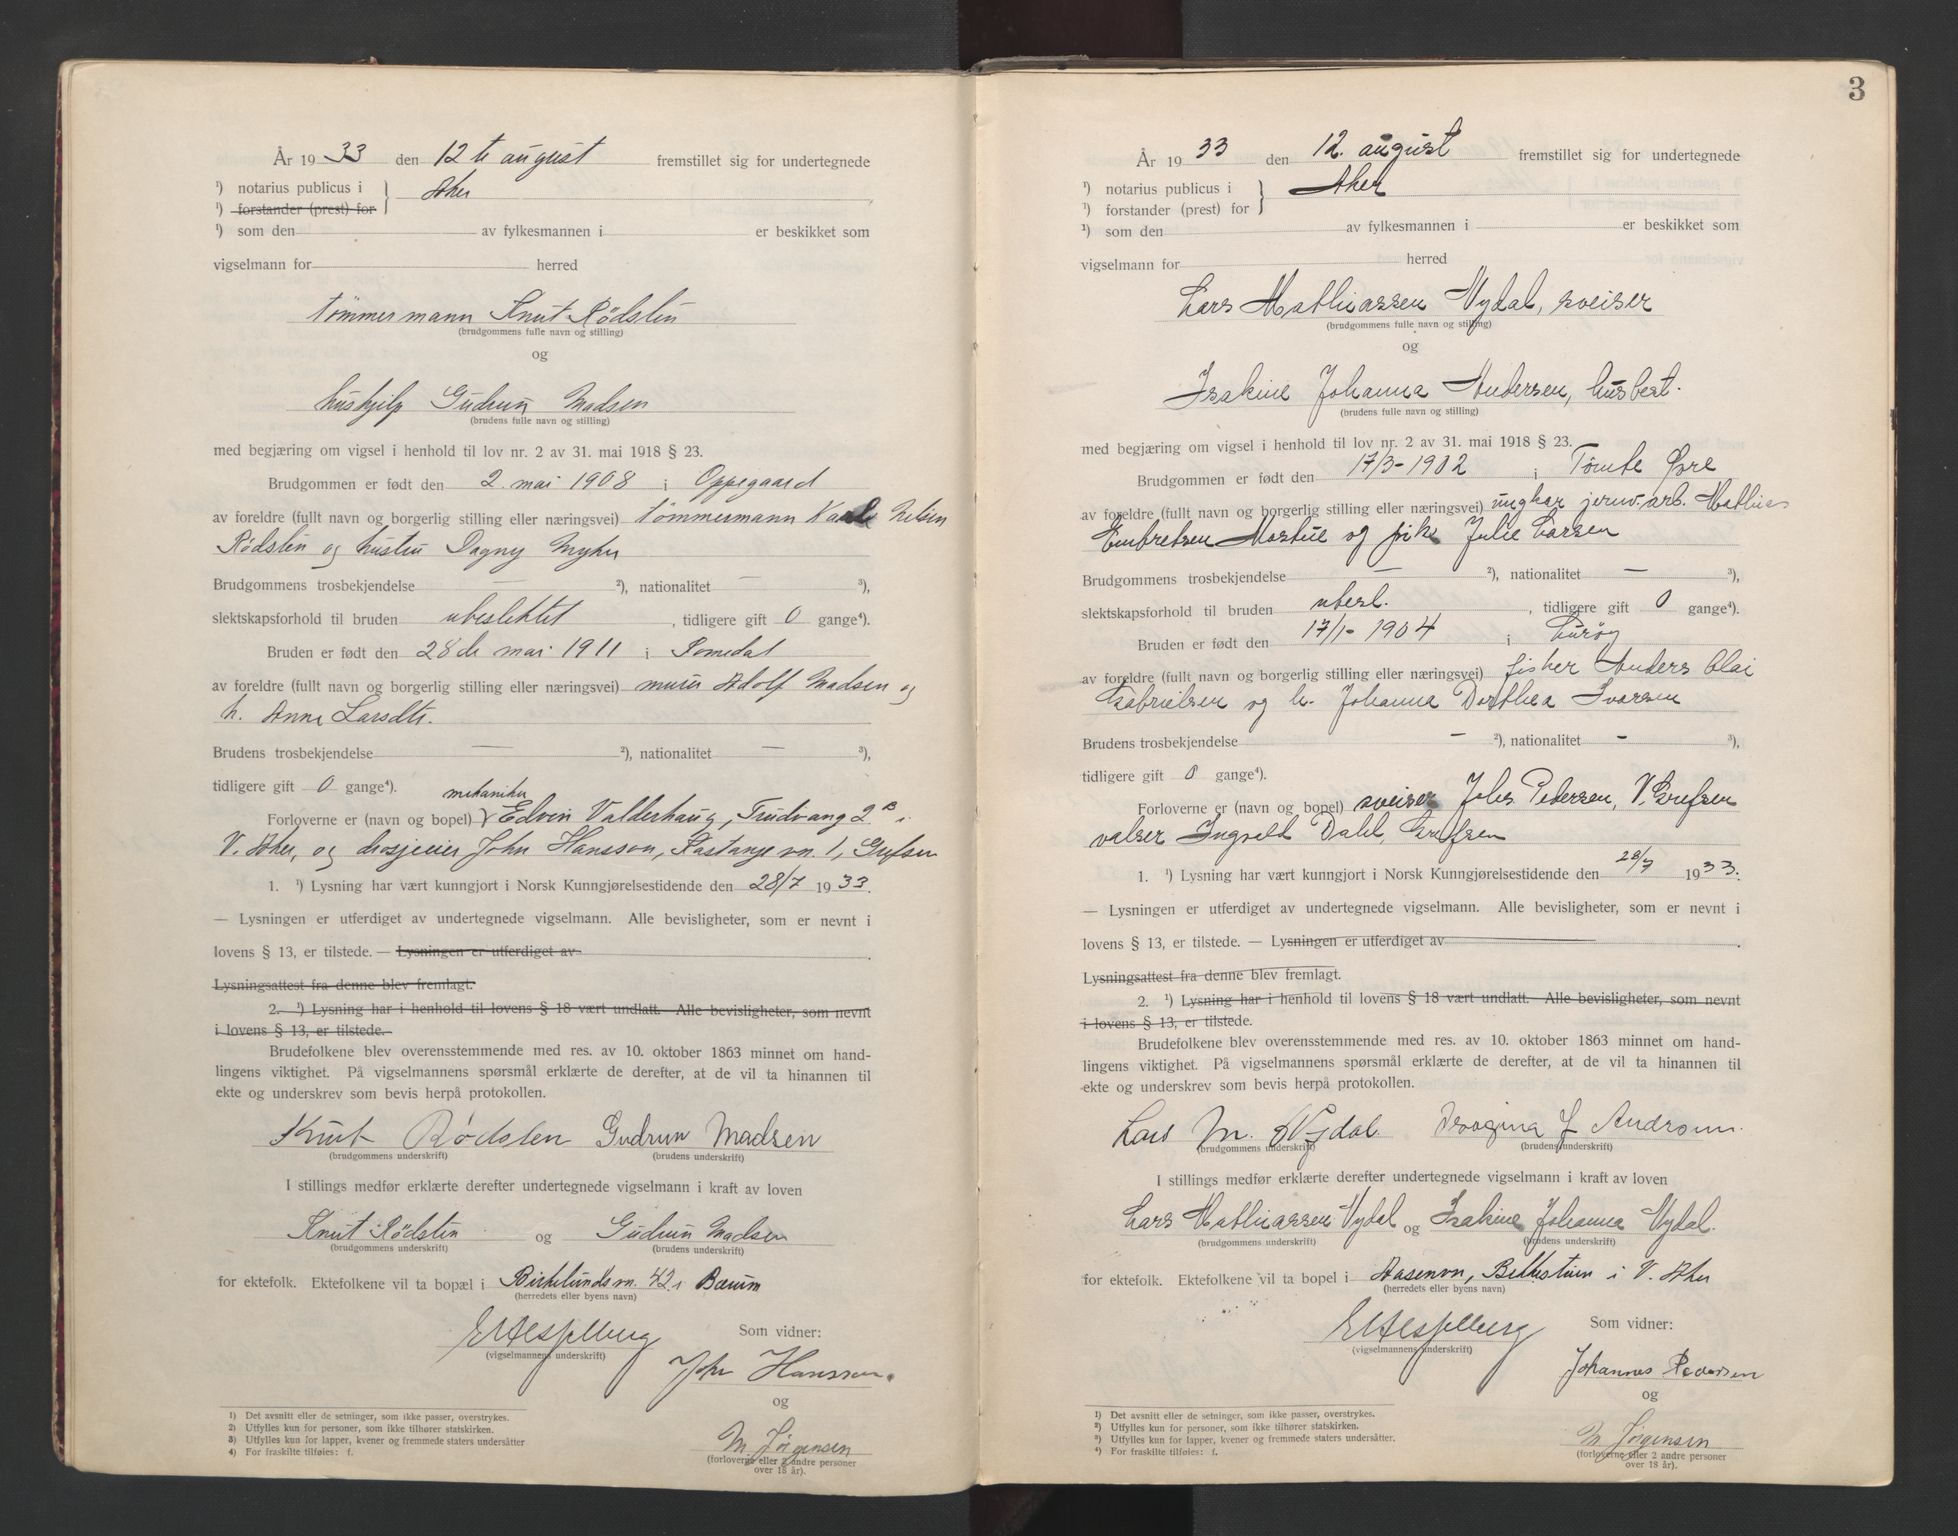 År 1933 den 12te august fremstillet sig for undertegnede
¹) notarius publicus i } Aker
¹) forstander (prest) for
¹) som den av fylkesmannen i er beskikket som
vigselmann for herred
tömmermann Knut Rödsten
(brudgommens fulle navn og stilling)
og
hushjelp Gudrun Madsen
(brudens fulle navn og stilling)
med begjæring om vigsel i henhold til lov nr. 2 av 31. mai 1918 § 23.
Brudgommen er født den 2. mai 1908 i Oppegaard
av foreldre (fullt navn og borgerlig stilling eller næringsvei) tömmermann Nelsen
Rödsten og hustru Dagny Myhre
Brudgommens trosbekjendelse — ²), nationalitet — ³),
slektskapsforhold til bruden ubeslektet, tidligere gift 0 gange⁴).
Bruden er født den 28de mai 1911 i Romedal
av foreldre (fullt navn og borgerlig stilling eller næringsvei) murer Adolf Madsen og
h. Anne Larsdtr.
Brudens trosbekjendelse — ²), nationalitet — ³),
tidligere gift 0 gange⁴). mekaniker
Forloverne er (navn og bopel) Edvin Valderhaug, Trudvang 2B i
V. Aker, og drosjeeier John Hansson, Kastanjevn. 1, Grefsen
1. ¹) Lysning har vært kunngjort i Norsk Kunngjørelsestidende den 28/7 1933.
— Lysningen er utferdiget av undertegnede vigselmann. Alle bevisligheter, som er nevnt i
lovens § 13, er tilstede. — Lysningen er utferdiget av
Lysningsattest fra denne blev fremlagt.
2. ¹) Lysning har i henhold til lovens § 18 vært undlatt. Alle bevisligheter, som nevnt
i lovens § 13, er tilstede.
Brudefolkene blev overensstemmende med res. av 10. oktober 1863 minnet om hand-
lingens viktighet. På vigselmannens spørsmål erklærte de derefter, at de vil ta hinannen til
ekte og underskrev som bevis herpå protokollen.
Knut Rödsten Gudrun Madsen
(brudgommens underskrift) (brudens underskrift)
I stillings medfør erklærte derefter undertegnede vigselmann i kraft av loven
Knut Rödsten og Gudrun Madsen
(brudgommens underskrift) (brudens underskrift)
for ektefolk. Ektefolkene vil ta bopæl i Birkelundsvn. 42 i Bærum
(herredets eller byens navn)
Som vidner:
(vigselmannens underskrift)
John Hansson.
og
M. Jörgensen
(forloverne eller 2 andre personer
over 18 år).
1) Det avsnitt eller de setninger, som ikke passer, overstrykes.
2) Utfylles kun for personer, som ikke tilhører statskirken.
3) Utfylles kun for lapper, kvener og fremmede staters undersåtter
4) For fraskilte tilføies: f.
3
År 1933 den 12. august fremstillet sig for undertegnede
¹) notarius publicus i } Aker
¹) forstander (prest) for
¹) som den av fylkesmannen i er beskikket som
vigselmann for herred
Lars Mathiassen Nydal, sveiser
(brudgommens fulle navn og stilling)
og
Isakine Johanna Andersen, husbest.
(brudens fulle navn og stilling)
med begjæring om vigsel i henhold til lov nr. 2 av 31. mai 1918 § 23.
Brudgommen er født den 17/3-1902 i Tomte Øvre
av foreldre (fullt navn og borgerlig stilling eller næringsvei) ungkar jernv.arb. Mathias
Embretsen Mostue og pike Julie Larsen
Brudgommens trosbekjendelse — ²), nationalitet — ³),
slektskapsforhold til bruden ubesl., tidligere gift 0 gange⁴).
Bruden er født den 17/1-1904 i Lurøy
av foreldre (fullt navn og borgerlig stilling eller næringsvei) fisker Anders Olai
Gabrielsen og h. Johanna Dorthea Ivarsen
Brudens trosbekjendelse — ²), nationalitet — ³),
tidligere gift 0 gange⁴).
Forloverne er (navn og bopel) sveiser Johs Pedersen, V. Grefsen
valser Ingvald Dahl, Grefsen
1. ¹) Lysning har vært kunngjort i Norsk Kunngjørelsestidende den 28/7 1933.
— Lysningen er utferdiget av undertegnede vigselmann. Alle bevisligheter, som er nevnt i
lovens § 13, er tilstede. — Lysningen er utferdiget av .
Lysningsattest fra denne blev fremlagt.
2. ¹) Lysning har i henhold til lovens § 18 vært undlatt. Alle bevisligheter, som nevnt
i lovens § 13, er tilstede.
Brudefolkene blev overensstemmende med res. av 10. oktober 1863 minnet om hand-
lingens viktighet. På vigselmannens spørsmål erklærte de derefter, at de vil ta hinannen til
ekte og underskrev som bevis herpå protokollen.
Lars M. Nydal. J
(brudgommens underskrift) (brudens underskrift)
I stillings medfør erklærte derefter undertegnede vigselmann i kraft av loven
Lars Mathiassen Nydal og Isakine Johanna Nydal.
(brudgommens underskrift) (brudens underskrift)
for ektefolk. Ektefolkene vil ta bopel i Aasenvn, Bekkestuen i V. Aker
(herredets eller byens navn)
Som vidner:
(vigselmannens underskrift)
Johannes Pedersen
og
M. Jörgensen
(forloverne eller 2 andre personer
over 18 år).
1) Det avsnitt eller de setninger, som ikke passer, overstrykes.
2) Utfylles kun for personer, som ikke tilhører statskirken.
3) Utfylles kun for lapper, kvener og fremmede staters undersåtter.
4) For fraskilte tilføies: f.